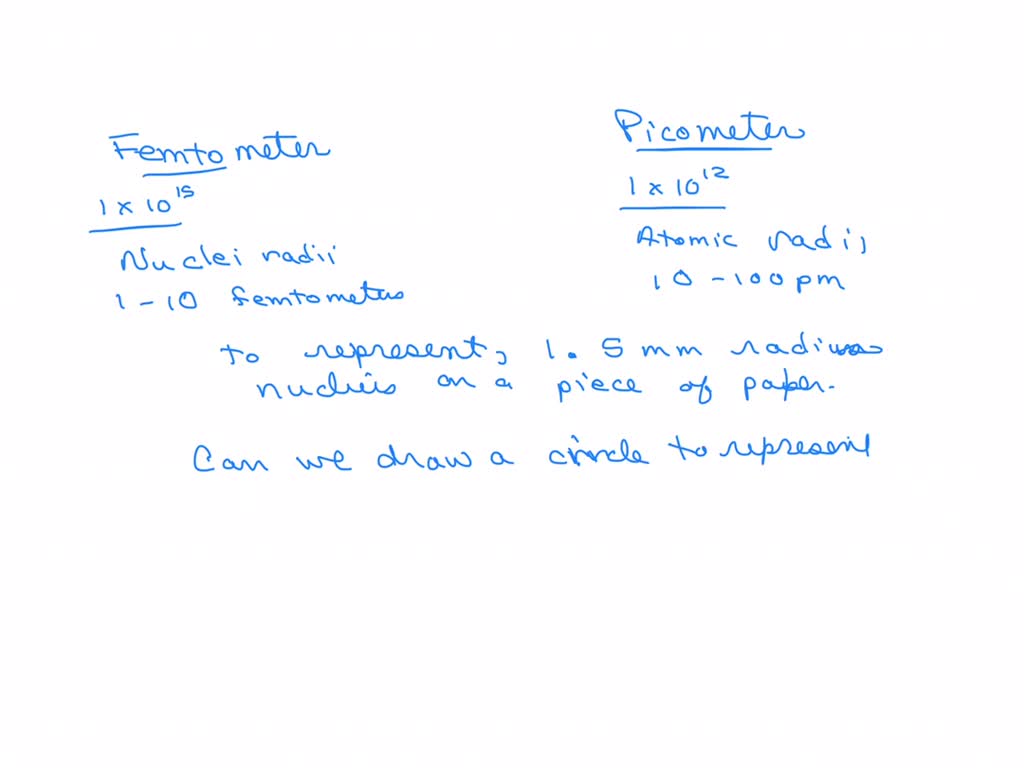 Femtometer
1 x 10^15
Nuclei radii
1 - 10 femtometers
Picometer
1 x 10^12
Atomic radii
10 - 100 pm
to represent, 1.5 mm radius
nucleus on a piece of paper.
Can we draw a circle to represent